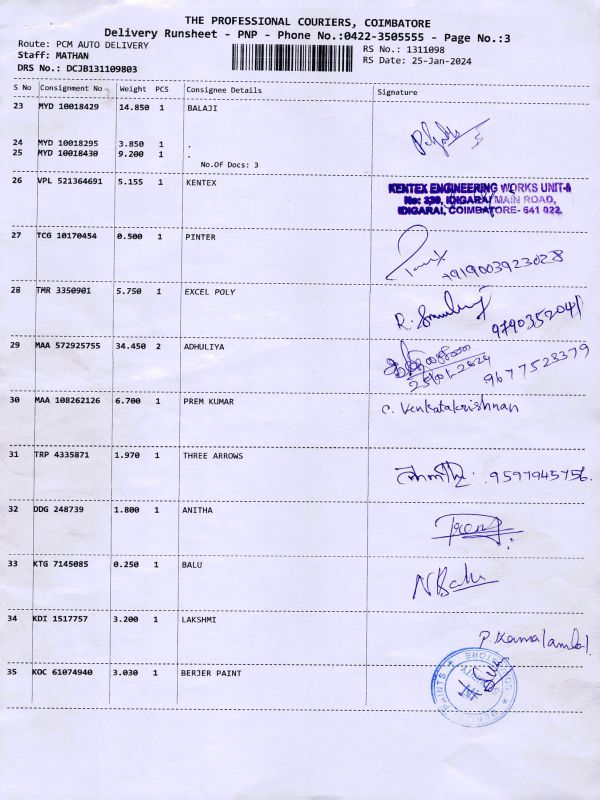 THE PROFESSIONAL COURIERS, COIMBATORE
Delivery Runsheet - PNP - Phone No.:0422-3505555 - Page No.:3
Route: PCM AUTO DELIVERY RS No.: 1311098
Staff: MATHAN RS Date: 25-Jan-2024
DRS No.: DCJB131109803
S No Consignment No Weight PCS Consignee Details Signature
23 MYD 10018429 14.850 1 BALAJI
24 MYD 10018295 3.850 1 .
25 MYD 10018430 9.200 1 .
No.Of Docs: 3
26 VPL 521364691 5.155 1 KENTEX
KENTEX ENGINEERING WORKS UNIT-II
No: 339, IDIGARAI MAIN ROAD,
IDIGARAI, COIMBATORE- 641 022.
27 TCG 10170454 0.500 1 PINTER
+919003923028
28 TMR 3350901 5.750 1 EXCEL POLY
9790352041
29 MAA 572925755 34.450 2 ADHULIYA
25/01-2024 9677528379
30 MAA 108262126 6.700 1 PREM KUMAR C. Venkatakrishnan
31 TRP 4335871 1.970 1 THREE ARROWS
9597945756.
32 DDG 248739 1.800 1 ANITHA
33 KTG 7145085 0.250 1 BALU N Balu
34 KDI 1517757 3.200 1 LAKSHMI
P Kamalambal.
35 KOC 61074940 3.030 1 BERJER PAINT